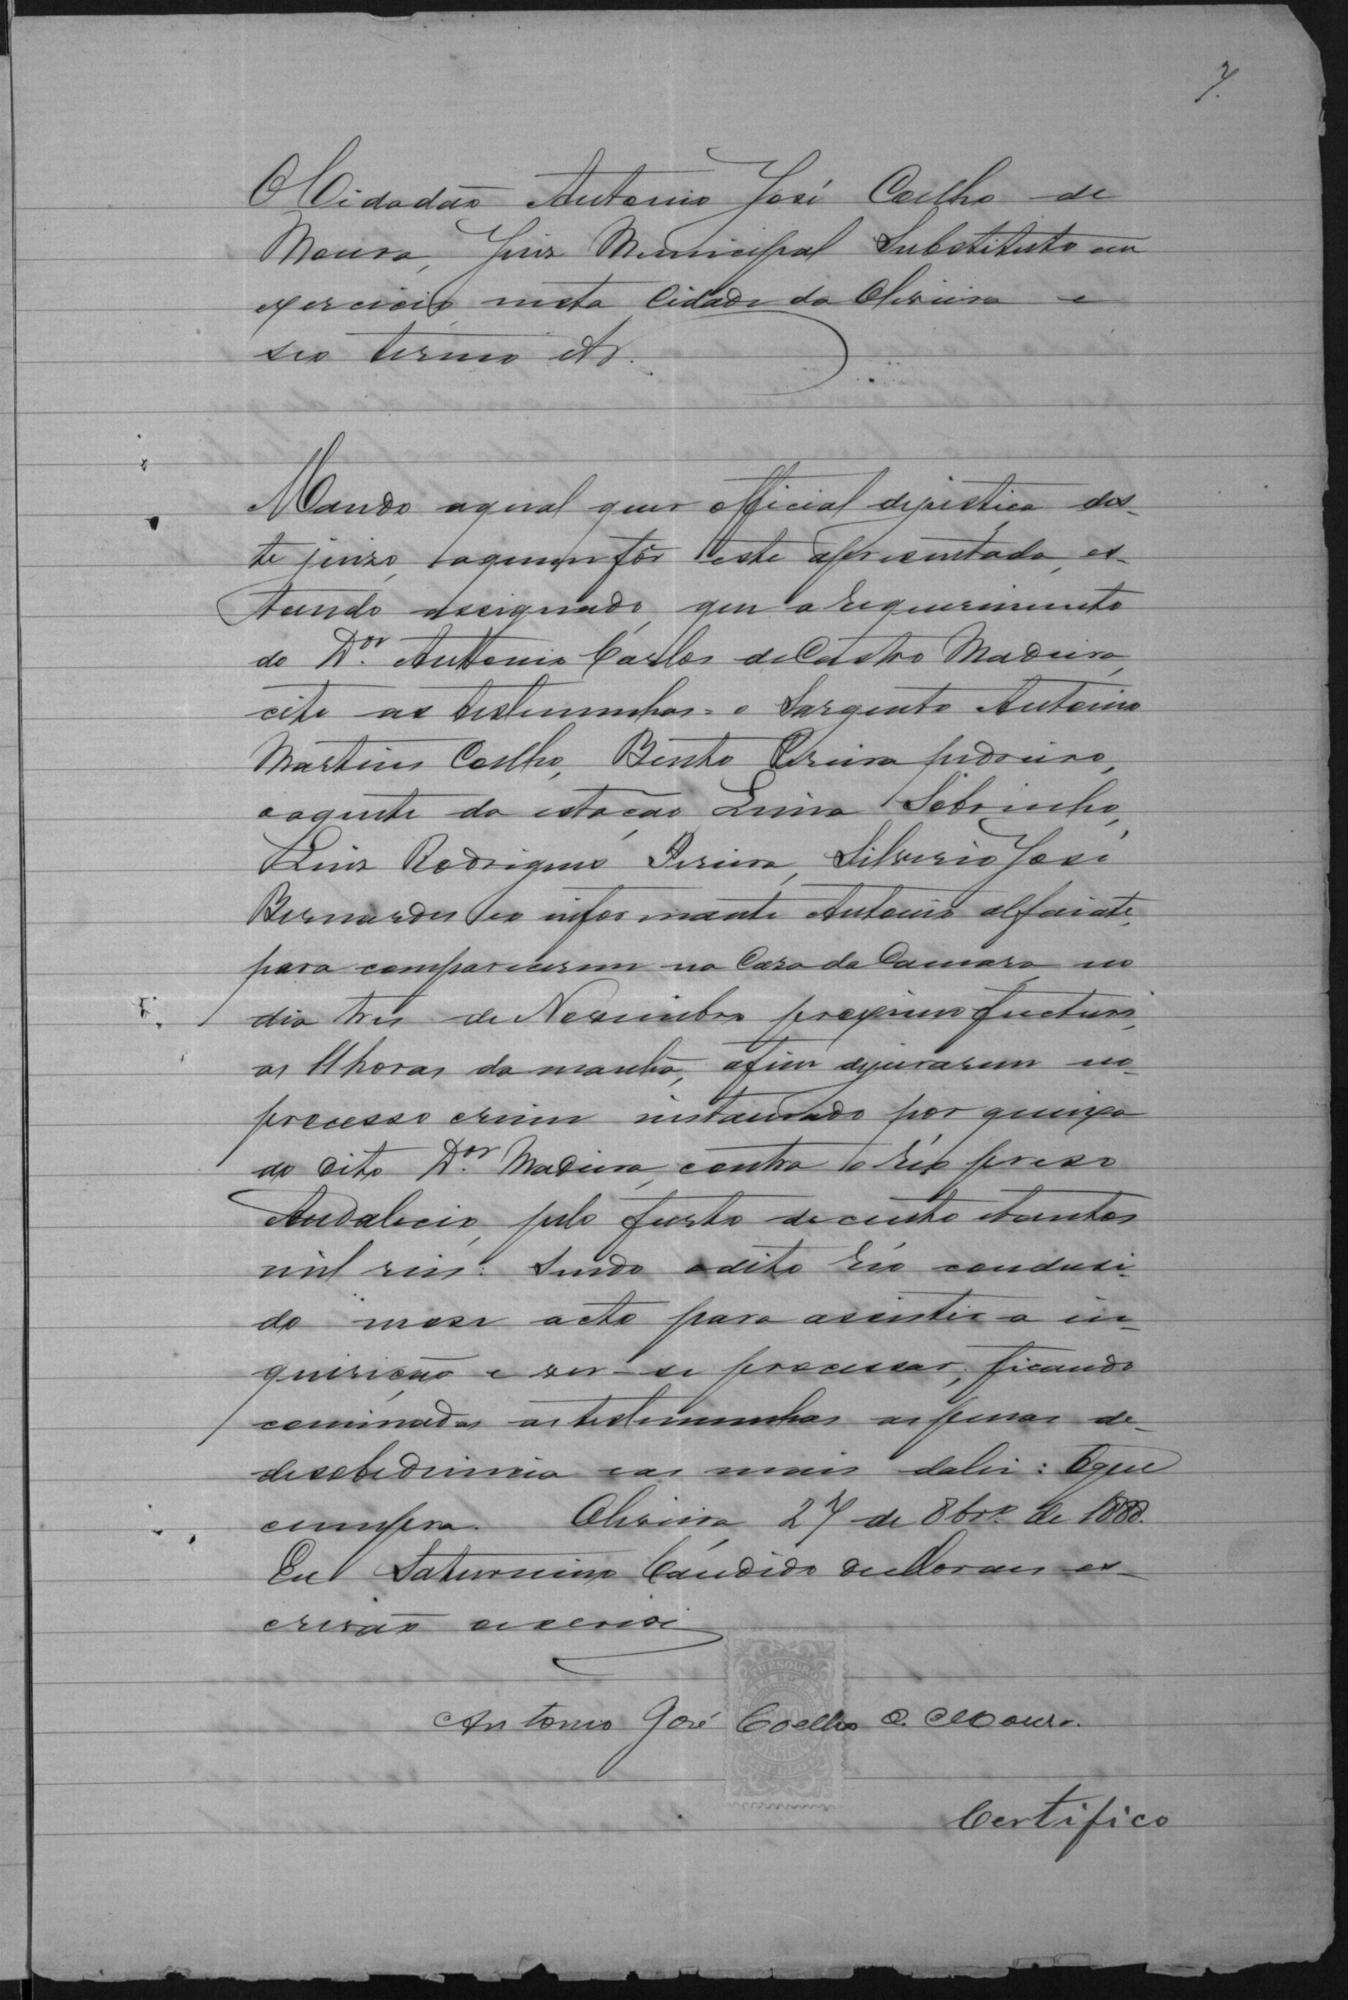 7.
O Cidadão Antonio José Coelho de
Moura, Juiz Municipal Substituto em
exercicio nesta Cidade da Oliveira e
seo termo &
Mando aqual quer official dejustiça des-
te juizo, aquem fôr este apresentado, es-
tando assignado, que a requerimento
do Dor. Antonio Carlos de Castro Madeira,
cite as testemunhas = o Sargento Antonio
Martins Coelho, Bento Pereira pedreiro,
oagente da estação Lima Sobrinho,
Luiz Rodrigues Pereira, Silverio José
Bernardes eo informante Antonio alfaiate,
para comparecerem na Casa da Camara no
dia tres de Novembro proximo fucturo,
as 11 horas da manhã, afim dejurarem no
processo crime instaurado por queixa
do dito Dor. Madeira, contra o réo preso
Andalecio, pelo furto de cento e tantos
mil reis: Sendo odito réo condusi-
do nesse acto para assistir a in-
quirição e ver-se processar, ficando
cominadas astestemunhas aspenas de-
desobediencia eas mais dalei: Oque
cumpra. Oliveira 27 de 8bro. de 1888.
Eu Saturnino Cándido de Moraes es-
crivão oescrivi
Antonio José Coelho d. Moura.
THESOURO
Certifico